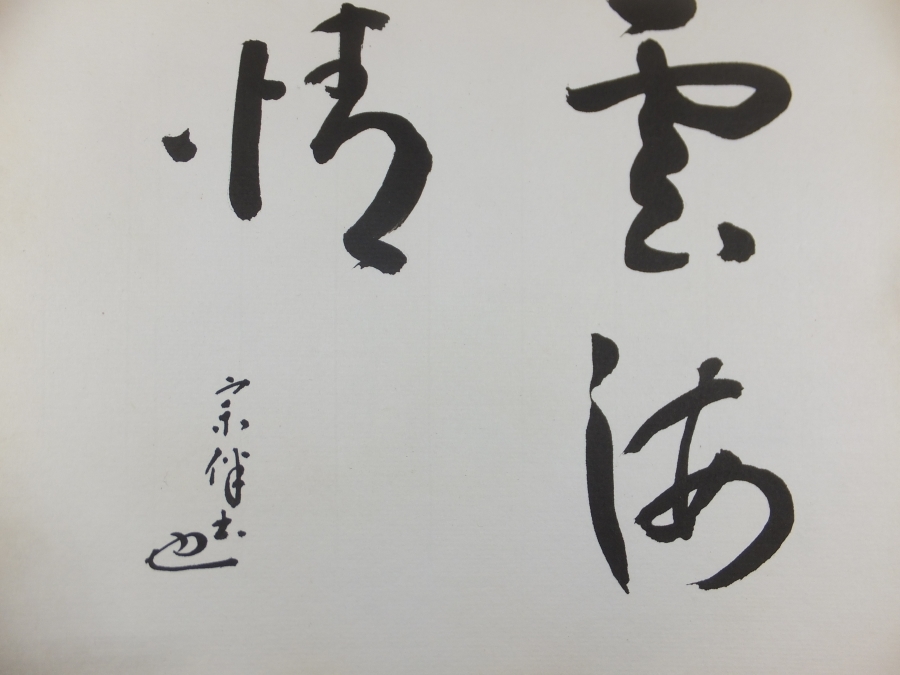 雲海
情
宗伴書